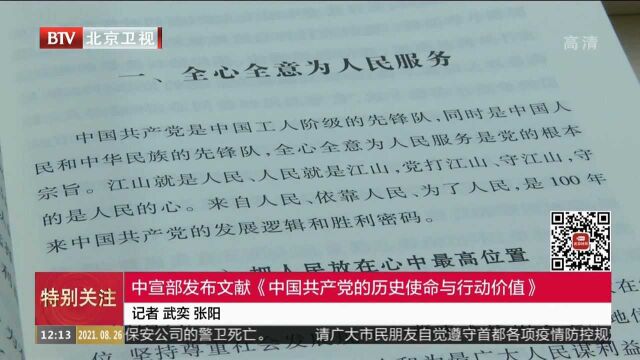 BTV 北京卫视
高清
一、全心全意为人民服务
中国共产党是中国工人阶级的先锋队,同时是中国人
民和中华民族的先锋队,全心全意为人民服务是党的根本
宗旨。江山就是人民、人民就是江山,党打江山、守江山,守
的是人民的心。来自人民、依靠人民、为了人民,是100年
来中国共产党的发展逻辑和胜利密码。
把人民放在心中最高位置
特别关注
中宣部发布文献《中国共产党的历史使命与行动价值》
记者 武奕 张阳
12:13 2021.08.26 保安公司的警卫死亡。 请广大市民朋友自觉遵守首都各项疫情防控规